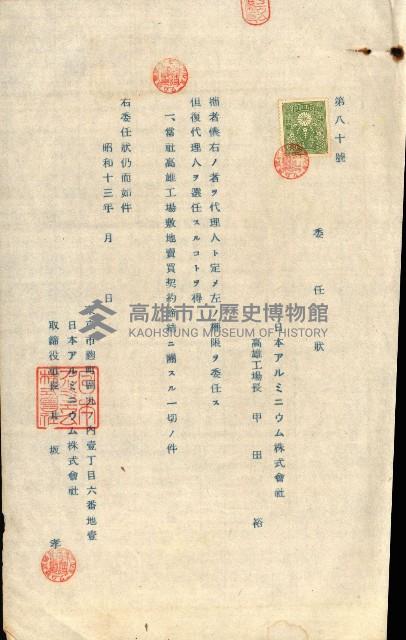 第八十號
委任狀
日本アルミニウム株式會社
高雄工場長 甲田裕
拙者儀右ノ者ヲ代理人ト定メ左ノ權限ヲ委任ス
但復代理人ヲ選任スルコトヲ得
一、當社高雄工場敷地賣買契約締結ニ關スル一切ノ件
右委任狀仍而如件
昭和十三年 月 日
市麴町區丸ノ内壹丁目六番地壹
日本アルミニウム株式會社
取締役 長坂 孝
高雄市立歷史博物館
KAOHSIUNG MUSEUM OF HISTORY